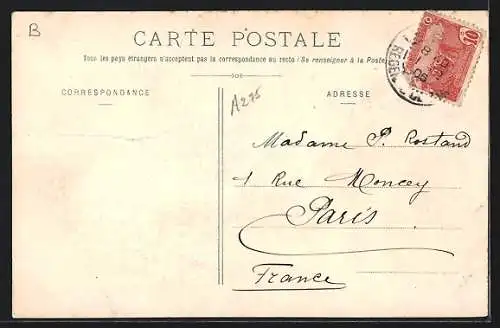 B
CARTE POSTALE
Tous les pays étrangers n'acceptent pas la correspondance au recto (Se renseigner à la Poste)
CORRESPONDANCE
A275
ADRESSE
10
Madame P. Rostand
1 Rue Moncey
Paris
France